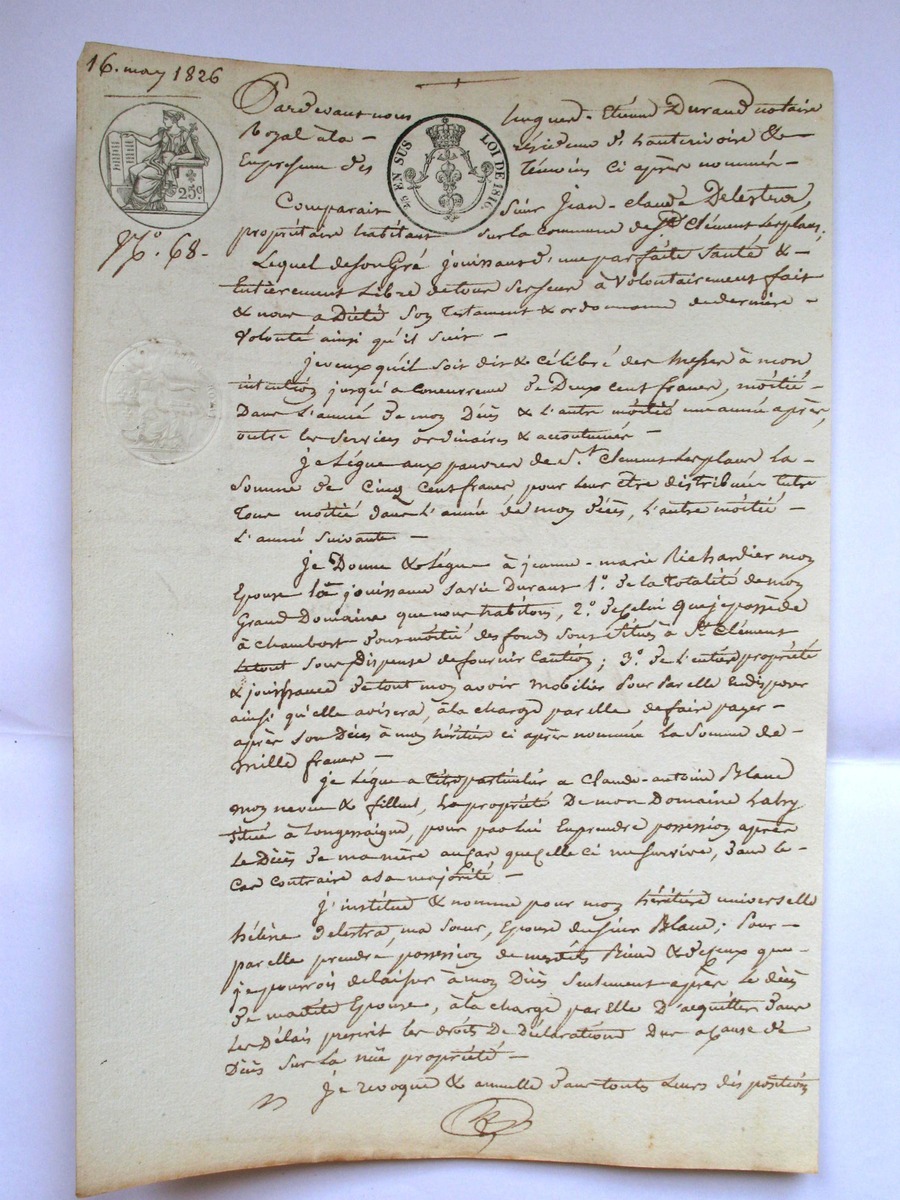 16. may 1826
Pardevant nous hugues-Etiene Durand notaire
Royal à la résidence d'hauterivoire &
En présence des Témoins ci après nommés -
25c
25 EN SUS LOI DE 1816.
Comparait Sieur Jean-claude Delestra,
propriétaire habitant sur la commune de St. Clément lesplaces,
N.o 68.
Lequel de son Gré jouissant d'une parfaite Santé &
Entièrement Libre de tous ses sens à Volontairement fait
& nous a Dicté son Testament & ordonnance de dernière
Volonté ainsi qu'il suit -
je veux qu'il soit dit & célébré des Messes à mon
intention jusqu'a concurrence de Deux cent francs, moitié
Dans L'année de mon Décès & L'autre moitié une année après,
outre les services ordinaires & accoutumés -
je Légue aux pauvres de St. Clément Lesplaces La
Somme de Cinq Cent francs pour Leur être distribués
moitié dans L'année de mon décès, L'autre moitié
L'année suivante -
je Donne & Légue à jeanne-marie Richardier mon
Epouse la jouissance sa vie Durant 1.o de la totalité de mon
Grand Domaine que nous habitons, 2.o de Celui que je possède
à chambost dont moitié des fonds sont situés à St. Clément
Le tout sous Dispense de fournir Caution; 3.o de L'entière propriété
& jouissance de tout mon avoir mobilier pour par elle En disposer
ainsi qu'elle avisera, à la charge par elle de faire payer
après son Décès à mon héritière ci après nommée La Somme de
mille francs -
je Légue a titre particulier a Claude-antoine Blanc
mon neveu & filleul, La propriété De mon Domaine
située à Longessaigne, pour par lui En prendre possession après
Le Décès de ma mère au cas que celle ci me survive, dans le
cas contraire a sa majorité -
j'institue & nomme pour mon héritière universelle
hélène Delestra, ma Soeur, Epouse du sieur Blanc; Pour
par elle prendre possession de mesdits Biens & de ceux que
je pourrois délaisser à mon Décès Seulement après Le décès
de madite Epouse, à la charge par Elle D'acquitter dans
Les Délais prescrit les droits De déclarations Dus a cause de
Décès sur La nüe propriété -
Je revoque & annulle dans toutes Leurs dispositions